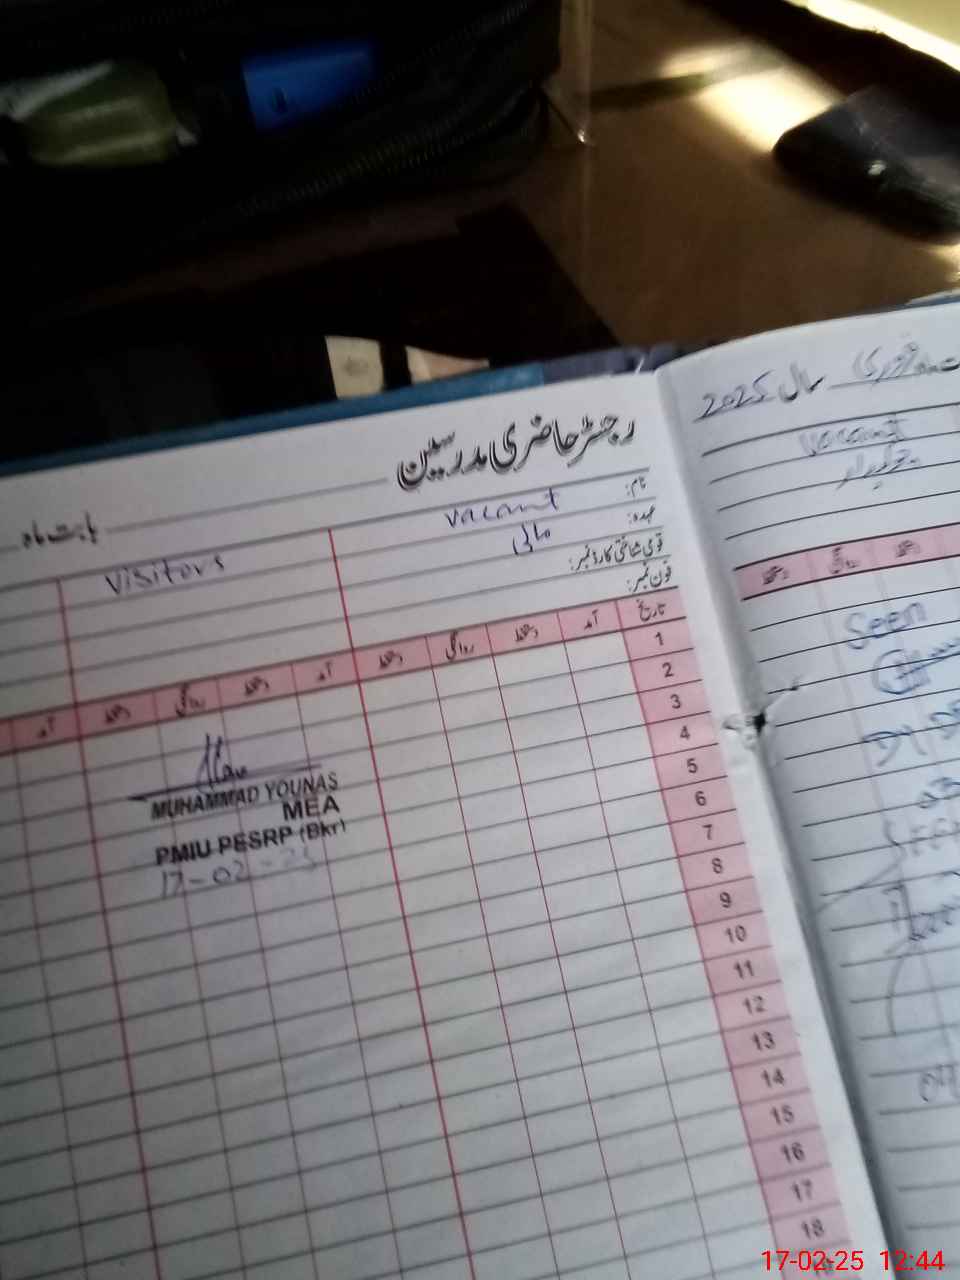 رجسٹر حاضری مدرسین
بابت ماہ
نام:
vacant
عہدہ:
مالی
قومی شناختی کارڈ نمبر:
فون نمبر:
visitors
تاریخ آمد دستخط روانگی دستخط آمد دستخط روانگی دستخط آمد
1
2
3
4
5
6
7
8
9
10
11
12
13
14
15
16
17
18
MUHAMMAD YOUNAS
MEA
PMIU PESRP (Bkr)
17-02-25
ماہ فروری سال 2025
vacant
چوکیدار
دستخط روانگی دستخط
Seen
17-02-25 12:44